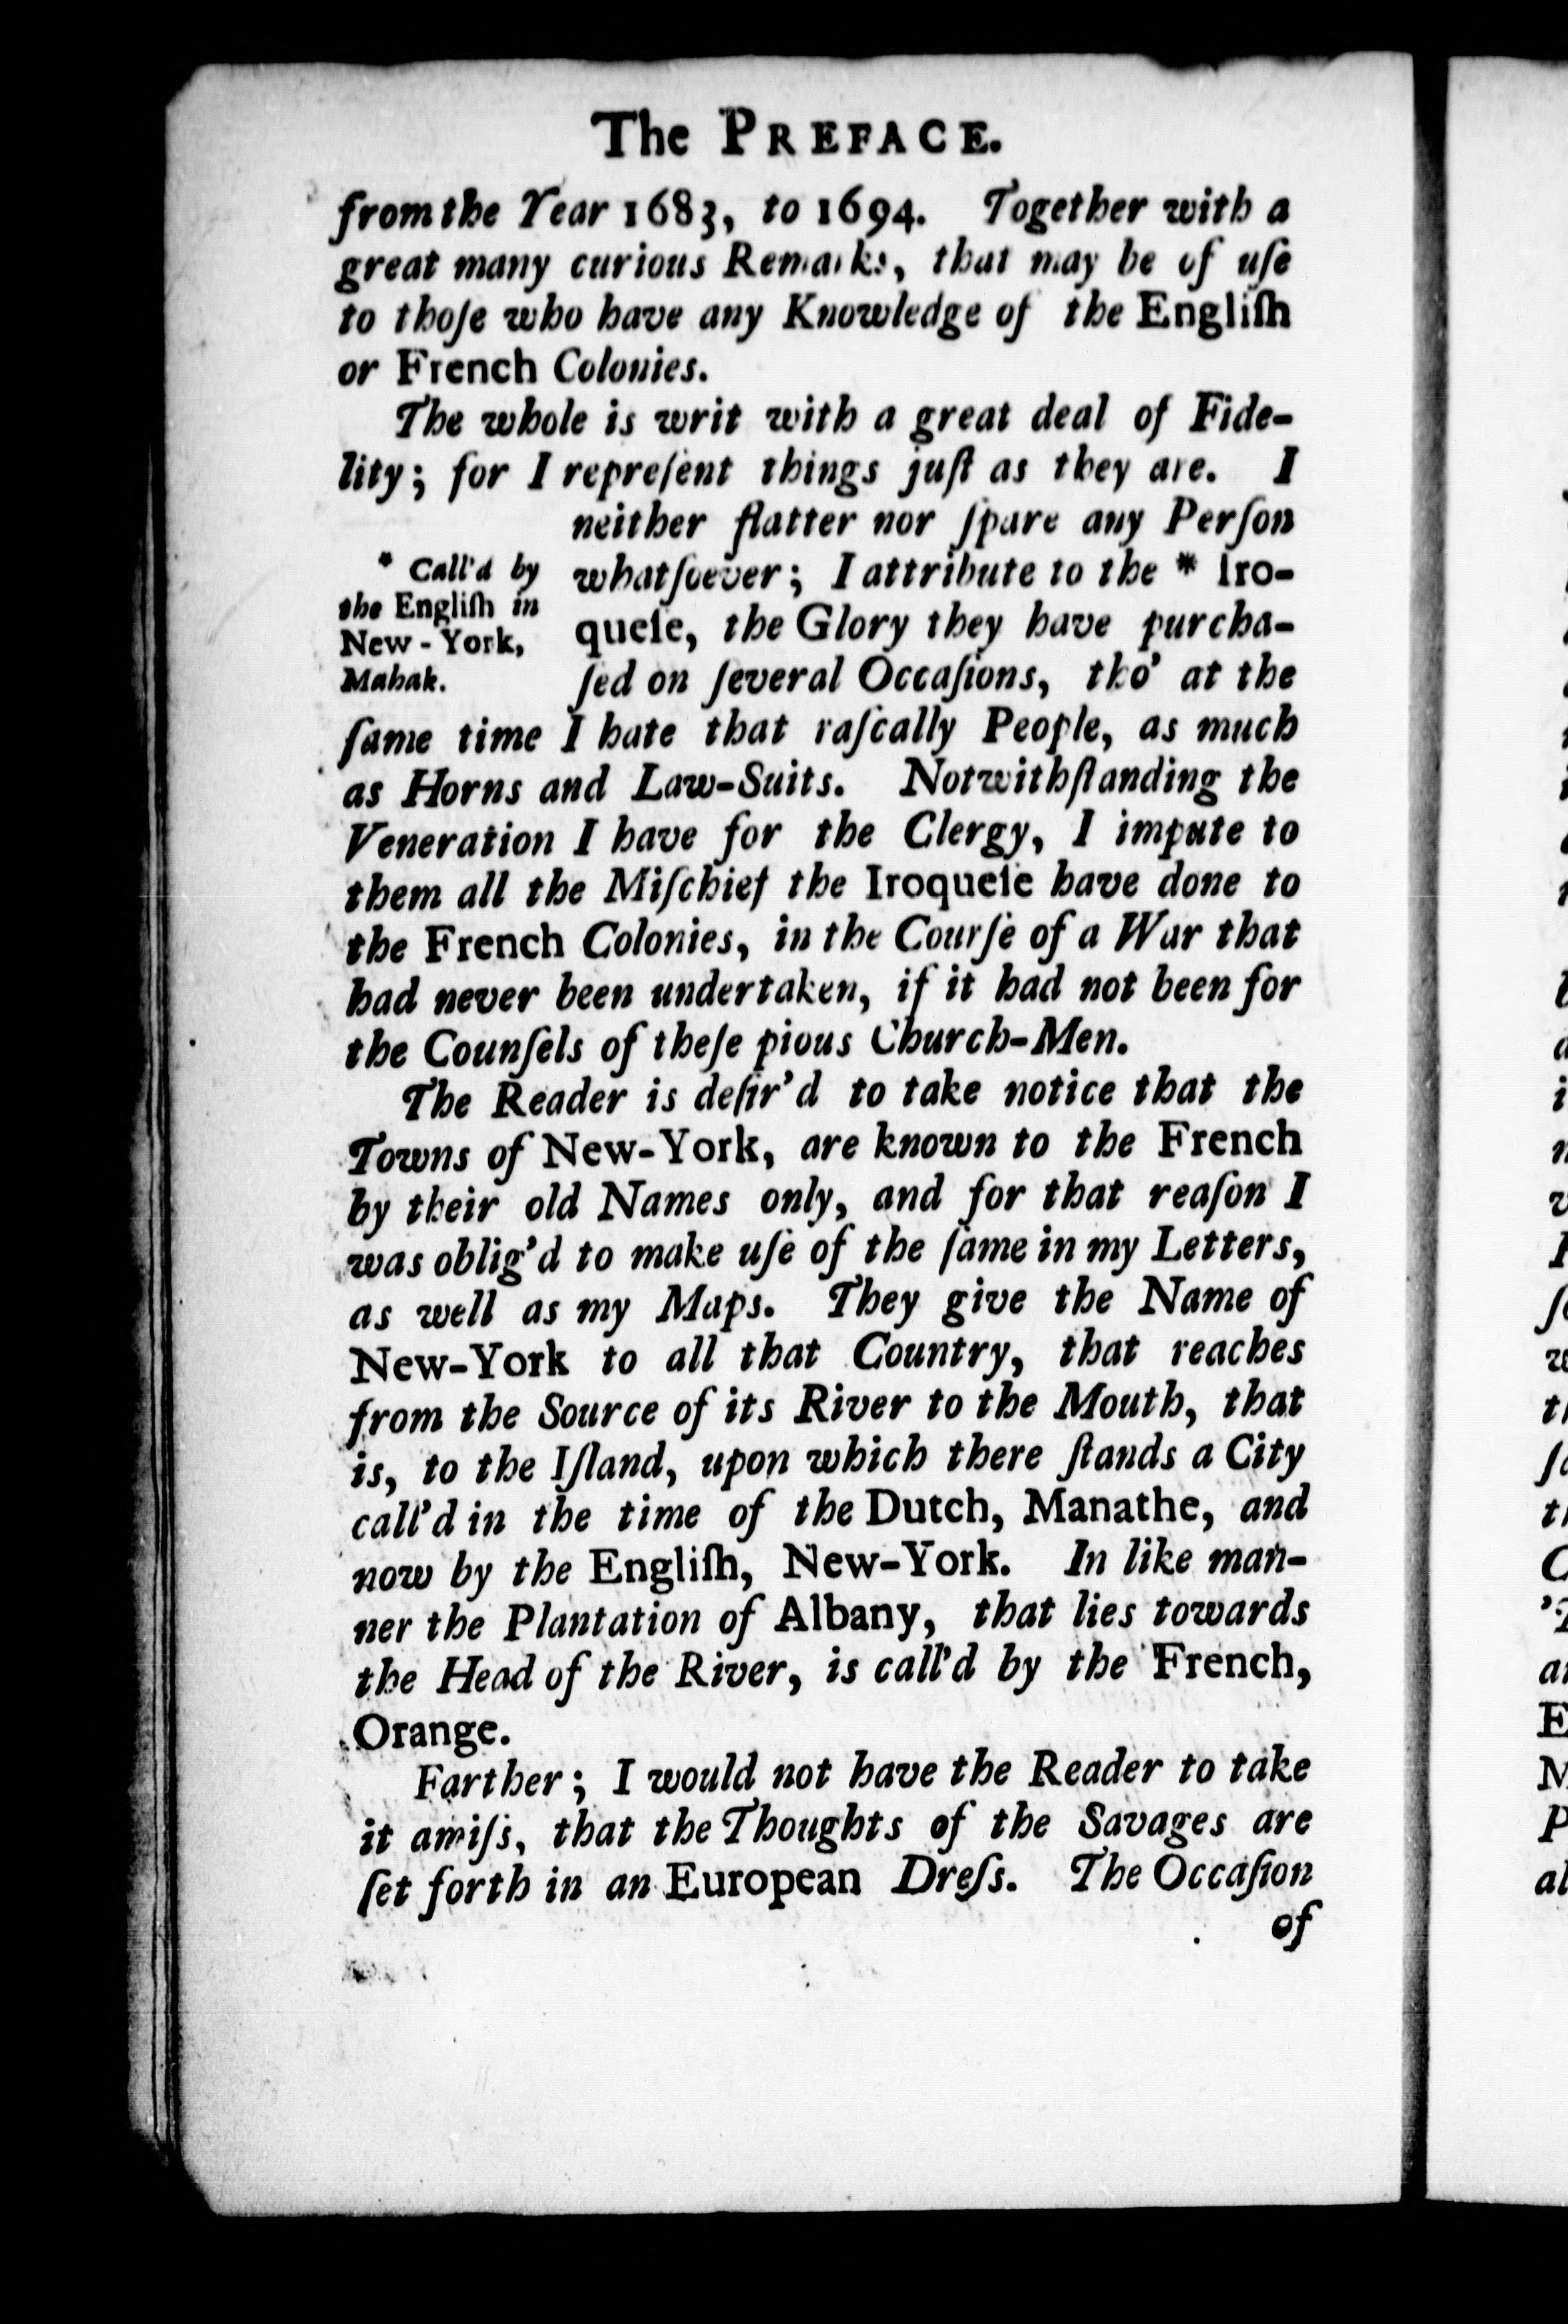 The PREFACE.
from the Year 1683, to 1694. Together with a
great many curious Remarks, that may be of uſe
to thoſe who have any Knowledge of the Engliſh
or French Colonies.
The whole is writ with a great deal of Fide-
lity; for I repreſent things juſt as they are. I
neither flatter nor ſpare any Perſon
whatſoever; I attribute to the * Iro-
queſe, the Glory they have purcha-
ſed on ſeveral Occaſions, tho' at the
* Call'd by
the Engliſh in
New-York,
Mahak.
ſame time I hate that raſcally People, as much
as Horns and Law-Suits. Notwithſtanding the
Veneration I have for the Clergy, I impute to
them all the Miſchief the Iroqueſe have done to
the French Colonies, in the Courſe of a War that
had never been undertaken, if it had not been for
the Counſels of theſe pious Church-Men.
The Reader is deſir'd to take notice that the
Towns of New-York, are known to the French
by their old Names only, and for that reaſon I
was oblig'd to make uſe of the ſame in my Letters,
as well as my Maps. They give the Name of
New-York to all that Country, that reaches
from the Source of its River to the Mouth, that
is, to the Iſland, upon which there ſtands a City
call'd in the time of the Dutch, Manathe, and
now by the Engliſh, New-York. In like man-
ner the Plantation of Albany, that lies towards
the Head of the River, is call'd by the French,
Orange.
Farther; I would not have the Reader to take
it amiſs, that the Thoughts of the Savages are
ſet forth in an European Dreſs. The Occaſion
of